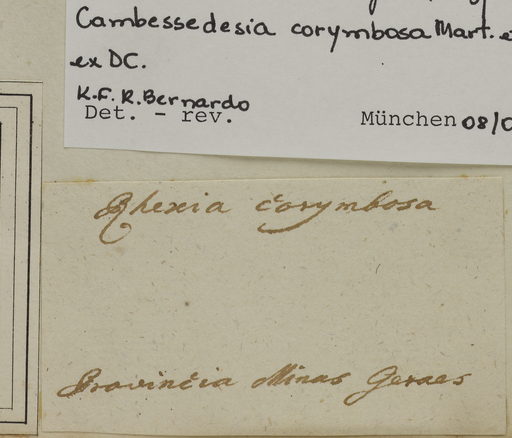 Cambessedesia corymbosa Mart.
ex DC.
K.F.R.Bernardo
Det. - rev. München 08/0
Rhexia corymbosa
Provincia Minas Geraes